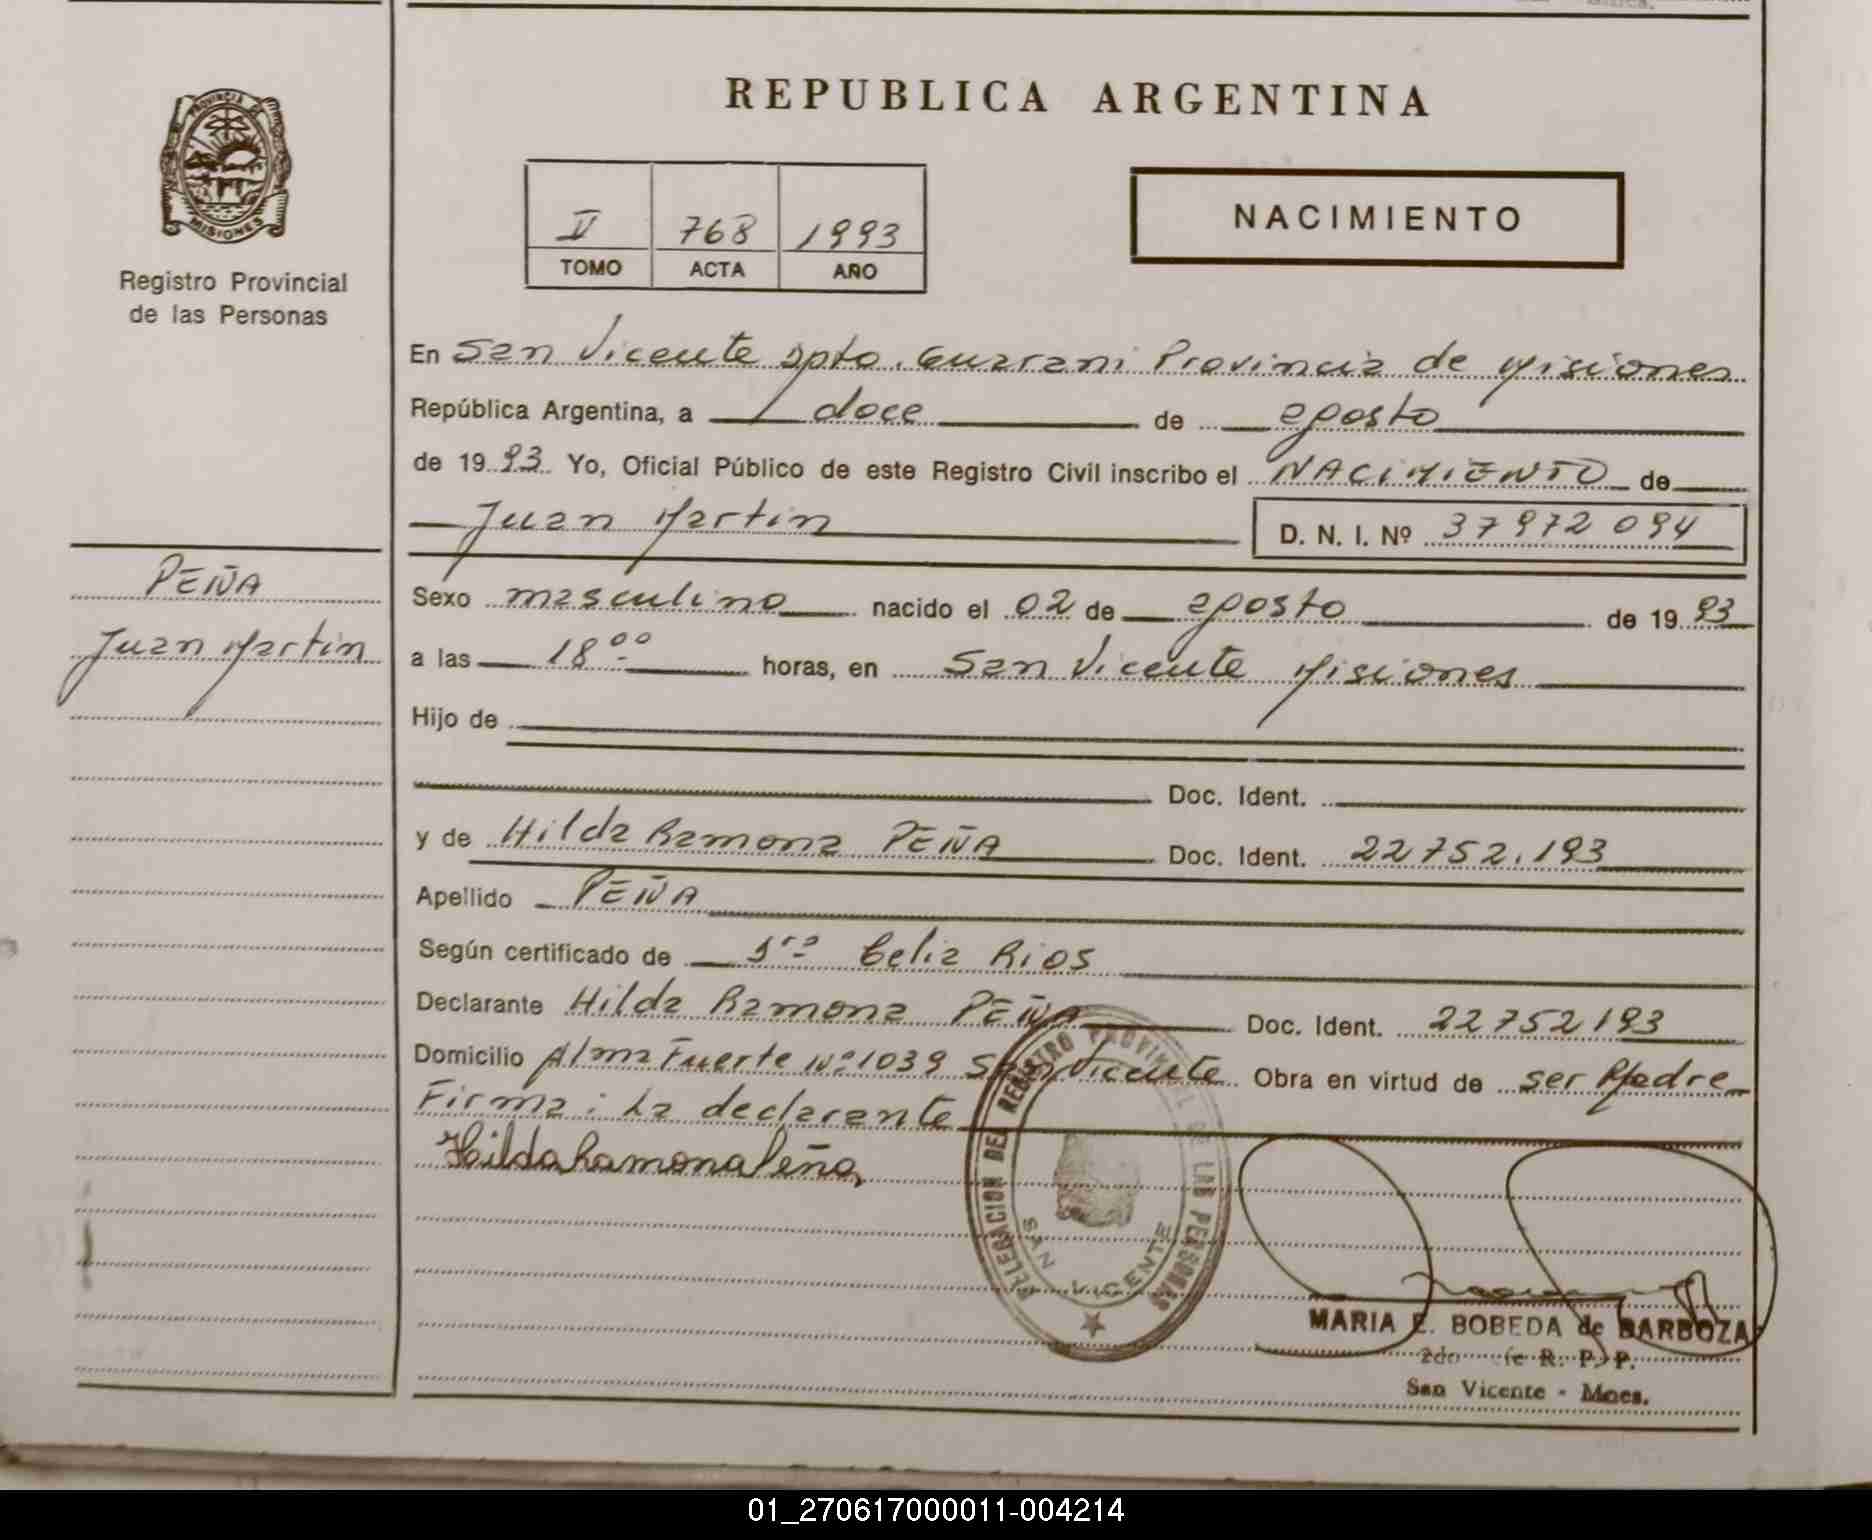 REPUBLICA ARGENTINA
PROVINCIA DE
MISIONES
Registro Provincial
de las Personas
II 768 1993
TOMO ACTA AÑO
NACIMIENTO
En San Vicente Dpto. Guarani Provincia de Misiones
República Argentina, a doce de agosto
de 1993 Yo, Oficial Público de este Registro Civil inscribo el NACIMIENTO de
Juan Martin D. N. I. Nº 37972094
PEÑA
Juan Martin
Sexo masculino nacido el 02 de agosto de 1993
a las 18⁰⁰ horas, en San Vicente Misiones
Hijo de
Doc. Ident.
y de Hilda Ramona PEÑA Doc. Ident. 22752.193
Apellido PEÑA
Según certificado de Celia Rios
Declarante Hilda Ramona PEÑA Doc. Ident. 22752193
Domicilio Alma Fuerte Nº 1039 San Vicente Obra en virtud de ser Madre
Firma: La declarante
Hilda Ramona Peña
DELEGACION DEL REGISTRO PROVINCIAL DE LAS PERSONAS
SAN VICENTE
MARIA E. BOBEDA de BARBOZA
2do R. P. P.
San Vicente - Mnes.
01_270617000011-004214